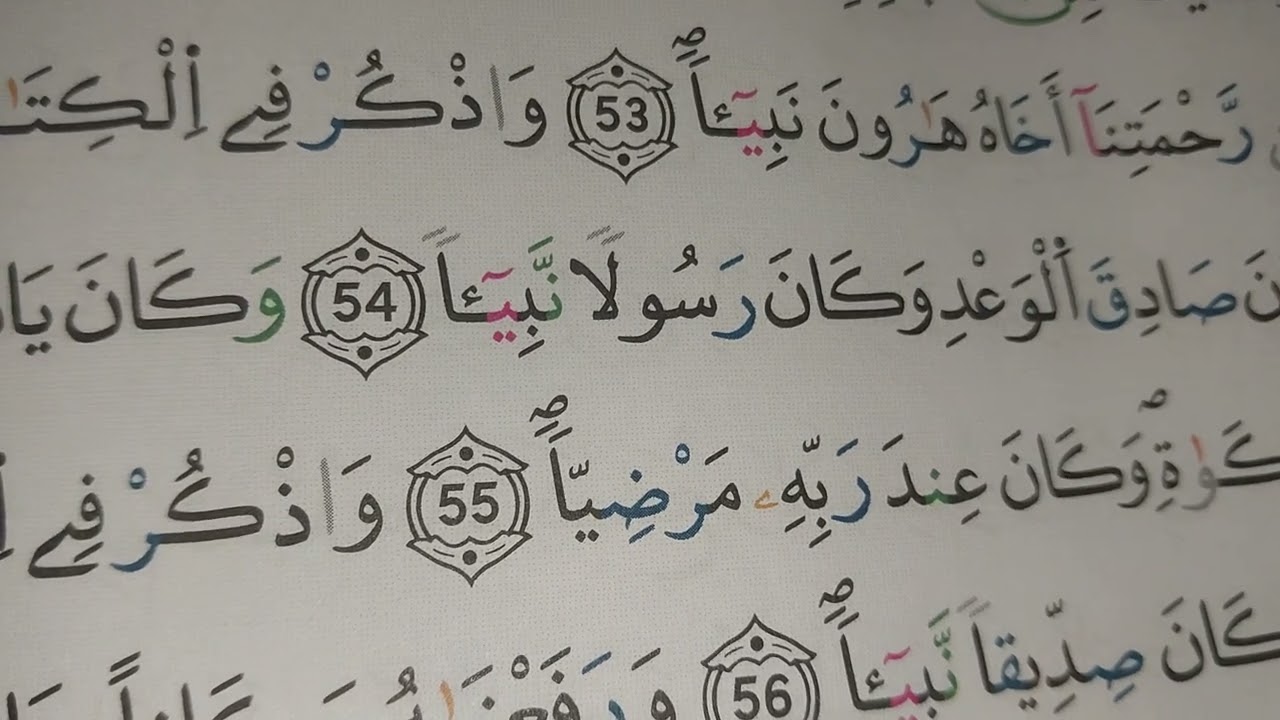 رَّحْمَتِنَآ أَخَاهُ هَٰرُونَ نَبِيـَٔاًۖ 53 وَاذْكُرْ فِے اِ۬لْكِتَٰ
صَادِقَ اَ۬لْوَعْدِ وَكَانَ رَسُولاً نَّبِيـَٔاً 54 وَكَانَ
وَكَانَ عِندَ رَبِّهِۦ مَرْضِيّاًۖ 55 وَاذْكُرْ فِے
كَانَ صِدِّيقاً نَّبِيـَٔاًۖ 56